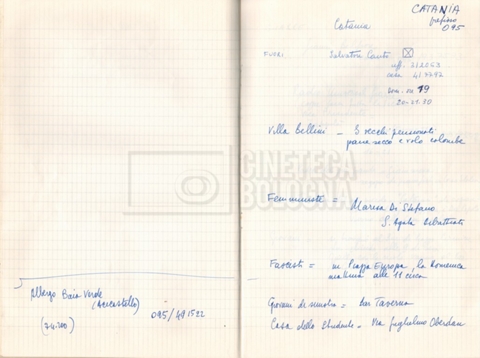 Albergo Baia Verde
(Acicastello)
095/491522
CATANIA
prefisso
095
Catania
FUSR: Salvatore
uff. 312653
casa 417292
dom. ore 19
20-21.30
Villa Bellini – 3 vecchi pensionati
pane secco e volo colombe
Femministe = Marisa Di Stefano
S. Agata
Fascisti = in Piazza Europa, la Domenica
mattina alle 11 circa
Giovani di sinistra = bar Taverna
Casa dello Studente = Via Guglielmo Oberdan
CINETECA
BOLOGNA